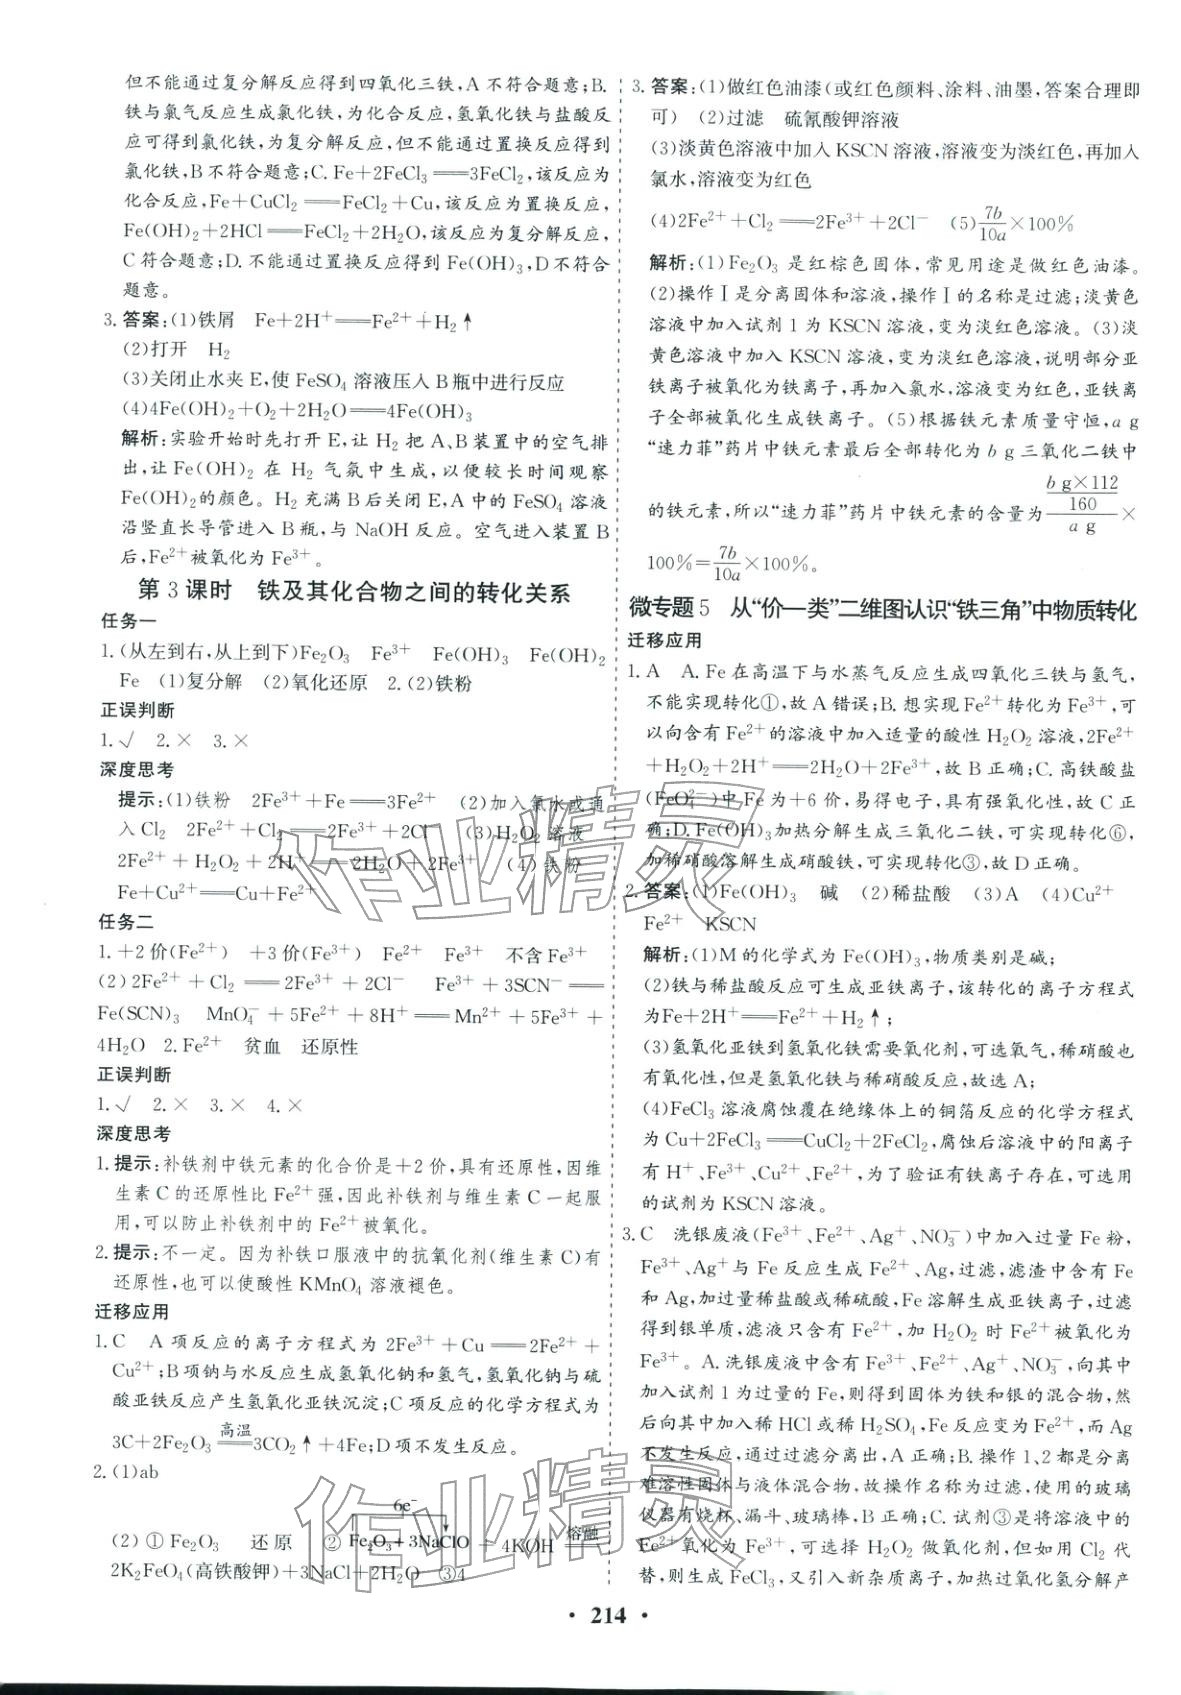 但不能通过复分解反应得到四氧化三铁,A不符合题意;B.
铁与氯气反应生成氯化铁,为化合反应,氢氧化铁与盐酸反
应可得到氯化铁,为复分解反应,但不能通过置换反应得到
氯化铁,B不符合题意;C. Fe+2FeCl₃══3FeCl₂,该反应为
化合反应,Fe+CuCl₂══FeCl₂+Cu,该反应为置换反应,
Fe(OH)₂+2HCl══FeCl₂+2H₂O,该反应为复分解反应,
C符合题意;D.不能通过置换反应得到Fe(OH)₃,D不符合
题意。
3.答案:(1)铁屑 Fe+2H⁺══Fe²⁺+H₂↑
(2)打开 H₂
(3)关闭止水夹E,使FeSO₄溶液压入B瓶中进行反应
(4)4Fe(OH)₂+O₂+2H₂O══4Fe(OH)₃
解析:实验开始时先打开E,让H₂把A、B装置中的空气排
出,让Fe(OH)₂在H₂气氛中生成,以便较长时间观察
Fe(OH)₂的颜色。H₂充满B后关闭E,A中的FeSO₄溶液
沿竖直长导管进入B瓶,与NaOH反应。空气进入装置B
后,Fe²⁺被氧化为Fe³⁺。
第3课时 铁及其化合物之间的转化关系
任务一
1.(从左到右,从上到下)Fe₂O₃ Fe³⁺ Fe(OH)₃ Fe(OH)₂
Fe (1)复分解 (2)氧化还原 2.(2)铁粉
正误判断
1.√ 2.× 3.×
深度思考
提示:(1)铁粉 2Fe³⁺+Fe══3Fe²⁺ (2)加入氯水或通
入Cl₂ 2Fe²⁺+Cl₂══2Fe³⁺+2Cl⁻ (3)H₂O₂溶液
2Fe²⁺+H₂O₂+2H⁺══2H₂O+2Fe³⁺ (4)铁粉
Fe+Cu²⁺══Cu+Fe²⁺
任务二
1.+2价(Fe²⁺) +3价(Fe³⁺) Fe²⁺ Fe³⁺ 不含Fe³⁺
(2)2Fe²⁺+Cl₂══2Fe³⁺+2Cl⁻ Fe³⁺+3SCN⁻══
Fe(SCN)₃ MnO₄⁻+5Fe²⁺+8H⁺══Mn²⁺+5Fe³⁺+
4H₂O 2.Fe²⁺ 贫血 还原性
正误判断
1.√ 2.× 3.× 4.×
深度思考
1.提示:补铁剂中铁元素的化合价是+2价,具有还原性,因维
生素C的还原性比Fe²⁺强,因此补铁剂与维生素C一起服
用,可以防止补铁剂中的Fe²⁺被氧化。
2.提示:不一定。因为补铁口服液中的抗氧化剂(维生素C)有
还原性,也可以使酸性KMnO₄溶液褪色。
迁移应用
1.C A项反应的离子方程式为2Fe³⁺+Cu══2Fe²⁺+
Cu²⁺;B项钠与水反应生成氢氧化钠和氢气,氢氧化钠与硫
酸亚铁反应产生氢氧化亚铁沉淀;C项反应的化学方程式为
3C+2Fe₂O₃ 高温══ 3CO₂↑+4Fe;D项不发生反应。
2.(1)ab
6e⁻
(2)①Fe₂O₃ 还原 ②Fe₂O₃+3NaClO+4KOH 熔融══
2K₂FeO₄(高铁酸钾)+3NaCl+2H₂O ③4
3.答案:(1)做红色油漆(或红色颜料、涂料、油墨,答案合理即
可) (2)过滤 硫氰酸钾溶液
(3)淡黄色溶液中加入KSCN溶液,溶液变为淡红色,再加入
氯水,溶液变为红色
(4)2Fe²⁺+Cl₂══2Fe³⁺+2Cl⁻ (5)7b/10a×100%
解析:(1)Fe₂O₃是红棕色固体,常见用途是做红色油漆。
(2)操作Ⅰ是分离固体和溶液,操作Ⅰ的名称是过滤;淡黄色
溶液中加入试剂1为KSCN溶液,变为淡红色溶液。(3)淡
黄色溶液中加入KSCN溶液,变为淡红色溶液,说明部分亚
铁离子被氧化为铁离子,再加入氯水,溶液变为红色,亚铁离
子全部被氧化生成铁离子。(5)根据铁元素质量守恒,a g
“速力菲”药片中铁元素最后全部转化为b g三氧化二铁中
的铁元素,所以“速力菲”药片中铁元素的含量为(b g×112/160)/(a g)×
100%=7b/10a×100%。
微专题5 从“价—类”二维图认识“铁三角”中物质转化
迁移应用
1.A A.Fe在高温下与水蒸气反应生成四氧化三铁与氢气,
不能实现转化①,故A错误;B.想实现Fe²⁺转化为Fe³⁺,可
以向含有Fe²⁺的溶液中加入适量的酸性H₂O₂溶液,2Fe²⁺
+H₂O₂+2H⁺══2H₂O+2Fe³⁺,故B正确;C.高铁酸盐
(FeO₄²⁻)中Fe为+6价,易得电子,具有强氧化性,故C正
确;D.Fe(OH)₃加热分解生成三氧化二铁,可实现转化⑥,
加稀硝酸溶解生成硝酸铁,可实现转化③,故D正确。
2.答案:(1)Fe(OH)₃ 碱 (2)稀盐酸 (3)A (4)Cu²⁺
Fe²⁺ KSCN
解析:(1)M的化学式为Fe(OH)₃,物质类别是碱;
(2)铁与稀盐酸反应可生成亚铁离子,该转化的离子方程式
为Fe+2H⁺══Fe²⁺+H₂↑;
(3)氢氧化亚铁到氢氧化铁需要氧化剂,可选氧气,稀硝酸也
有氧化性,但是氢氧化铁与稀硝酸反应,故选A;
(4)FeCl₃溶液腐蚀覆在绝缘体上的铜箔反应的化学方程式
为Cu+2FeCl₃══CuCl₂+2FeCl₂,腐蚀后溶液中的阳离子
有H⁺、Fe³⁺、Cu²⁺、Fe²⁺,为了验证有铁离子存在,可选用
的试剂为KSCN溶液。
3.C 洗银废液(Fe³⁺、Fe²⁺、Ag⁺、NO₃⁻)中加入过量Fe粉,
Fe³⁺、Ag⁺与Fe反应生成Fe²⁺、Ag,过滤,滤渣中含有Fe
和Ag,加过量稀盐酸或稀硫酸,Fe溶解生成亚铁离子,过滤
得到银单质,滤液只含有Fe²⁺,加H₂O₂时Fe²⁺被氧化为
Fe³⁺。A.洗银废液中含有Fe³⁺、Fe²⁺、Ag⁺、NO₃⁻,向其中
加入试剂1为过量的Fe,则得到固体为铁和银的混合物,然
后向其中加入稀HCl或稀H₂SO₄,Fe反应变为Fe²⁺,而Ag
不发生反应,通过过滤分离出,A正确;B.操作1、2都是分离
难溶性固体与液体混合物,故操作名称为过滤,使用的玻璃
仪器有烧杯、漏斗、玻璃棒,B正确;C.试剂③是将溶液中的
Fe²⁺氧化为Fe³⁺,可选择H₂O₂做氧化剂,但如用Cl₂代
替,则生成FeCl₃,又引入新杂质离子,加热过氧化氢分解产
• 214 •
作业精灵
作业精灵